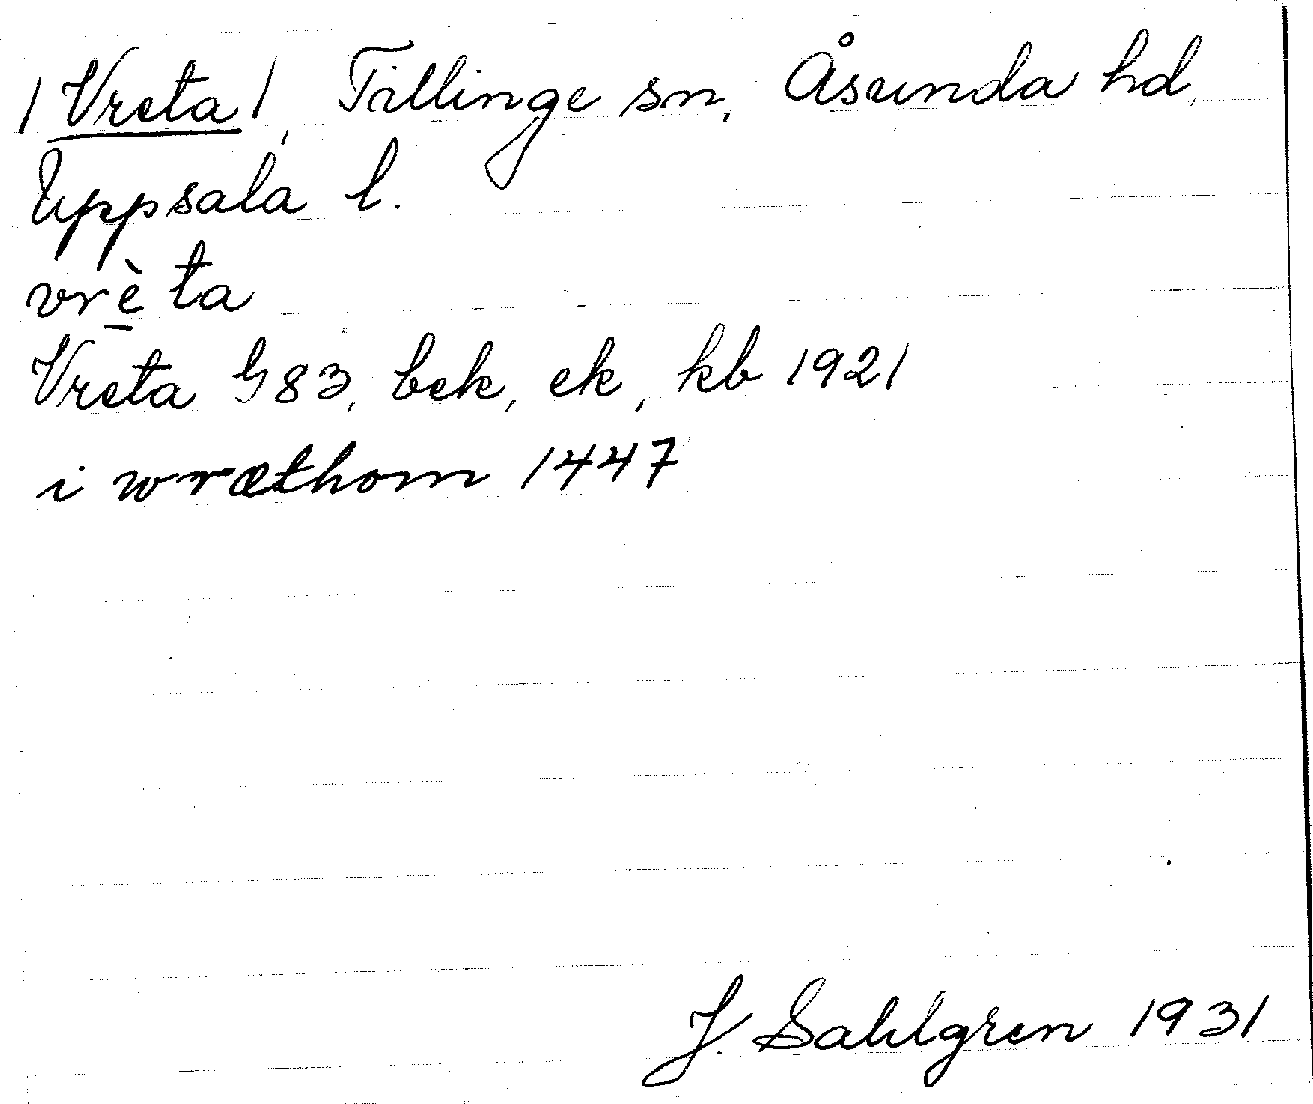 /Vreta/, Tillinge sn, Åsunda hd,
Uppsala l.
vrè̱ta
Vreta G83, bek, ek, kb 1921
i wræthom 1447
J. Sahlgren 1931